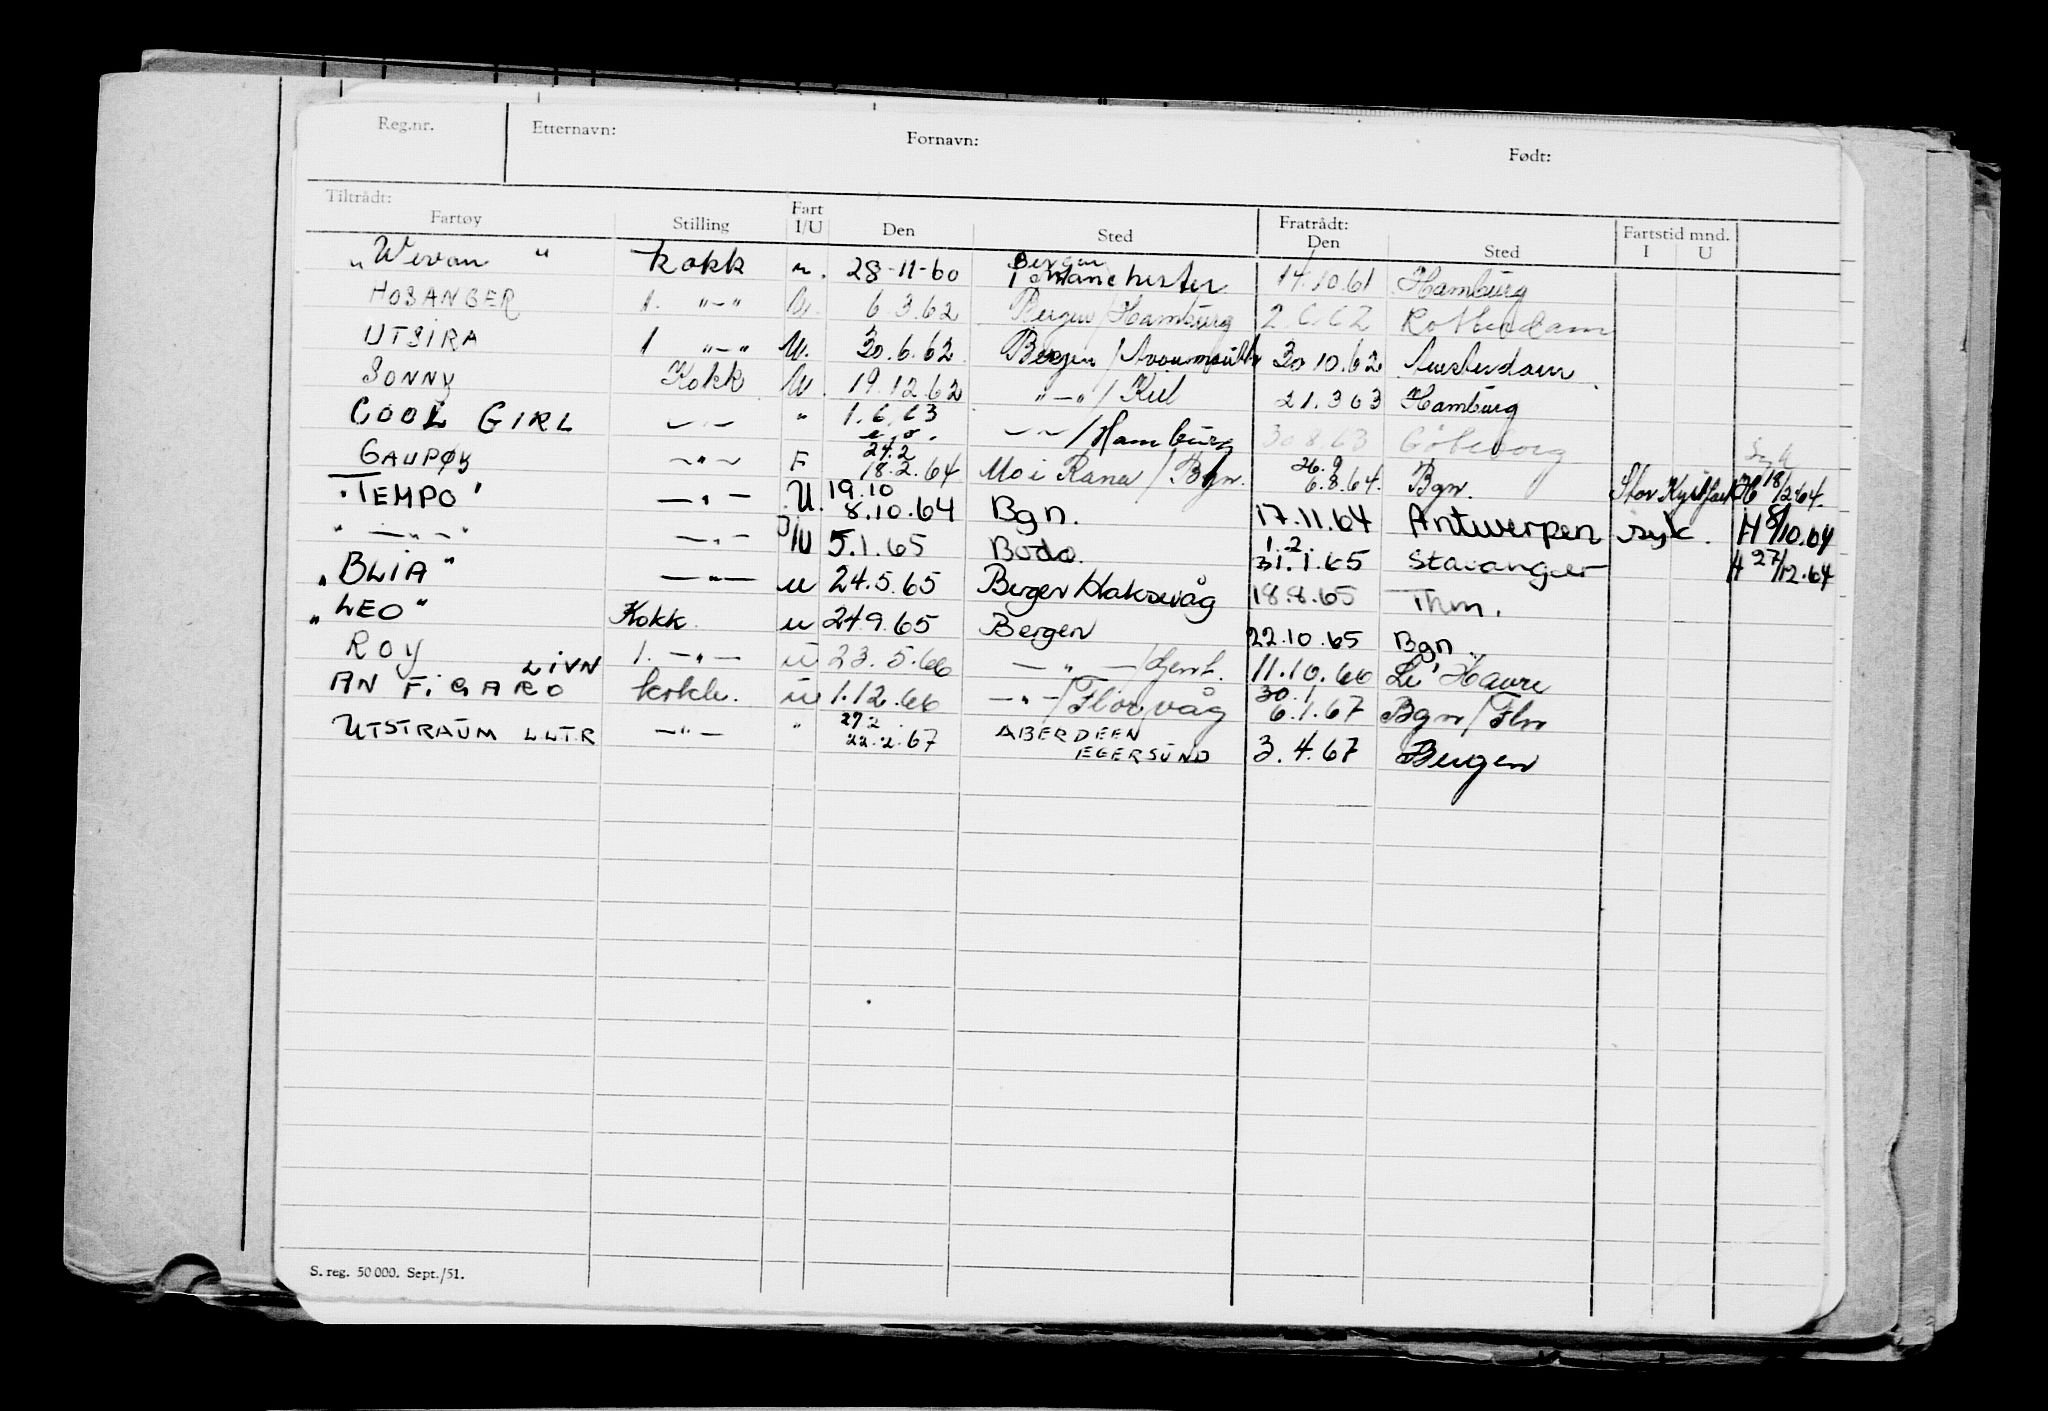 Reg.nr. Etternavn: Fornavn: Født:
Tiltrådt: Fratrådt: Fartstid mnd.
Fartøy Stilling Fart I/U Den Sted Den Sted I U
" " kokk 28-11-60 Bergen / Manchester 14.10.61 Hamburg
HOSANGER 1. "—" U. 6.3.62 Bergen / Hamburg 2.6.62 Rotterdam
UTSIRA 1 "—" U. 30.6.62 Bergen / 30.10.62 Amsterdam
SONNY Kokk U. 19.12.62 "—" / Kiel 21.3.63 Hamburg
COOL GIRL —"— " 1.6.63 —"— / Hamburg 30.8.63 Göteborg
GAUPØY —"— F 24.2 18.2.64 Mo i Rana / Bgn. 26.9 6.8.64. Bgn. Stor Kystfart 18/2.64.
"TEMPO" —"— U. 19.10 8.10.64 Bgn. 17.11.64 Antwerpen syk. H 8/10.64
" —"— " —"— I/U 5.1.65 Bodø. 1.2. 31.1.65 Stavanger H 27/12.64
"BLIA" —"— u 24.5.65 Bergen 18.8.65 Thm.
"LEO" Kokk. u 24.9.65 Bergen 22.10.65 Bgn.
ROY 1. —"— u 23.5.66 —"— / 11.10.66 Le Havre
AN FIGARO LIVN kokk. u 1.12.66 —"— / Florvåg 30.1 6.1.67 Bgn / Flv
UTSTRAUM LLTR —"— " 27.2. 22.2.67 ABERDEEN
EGERSUND 3.4.67 Bergen
S. reg. 50 000. Sept./51.